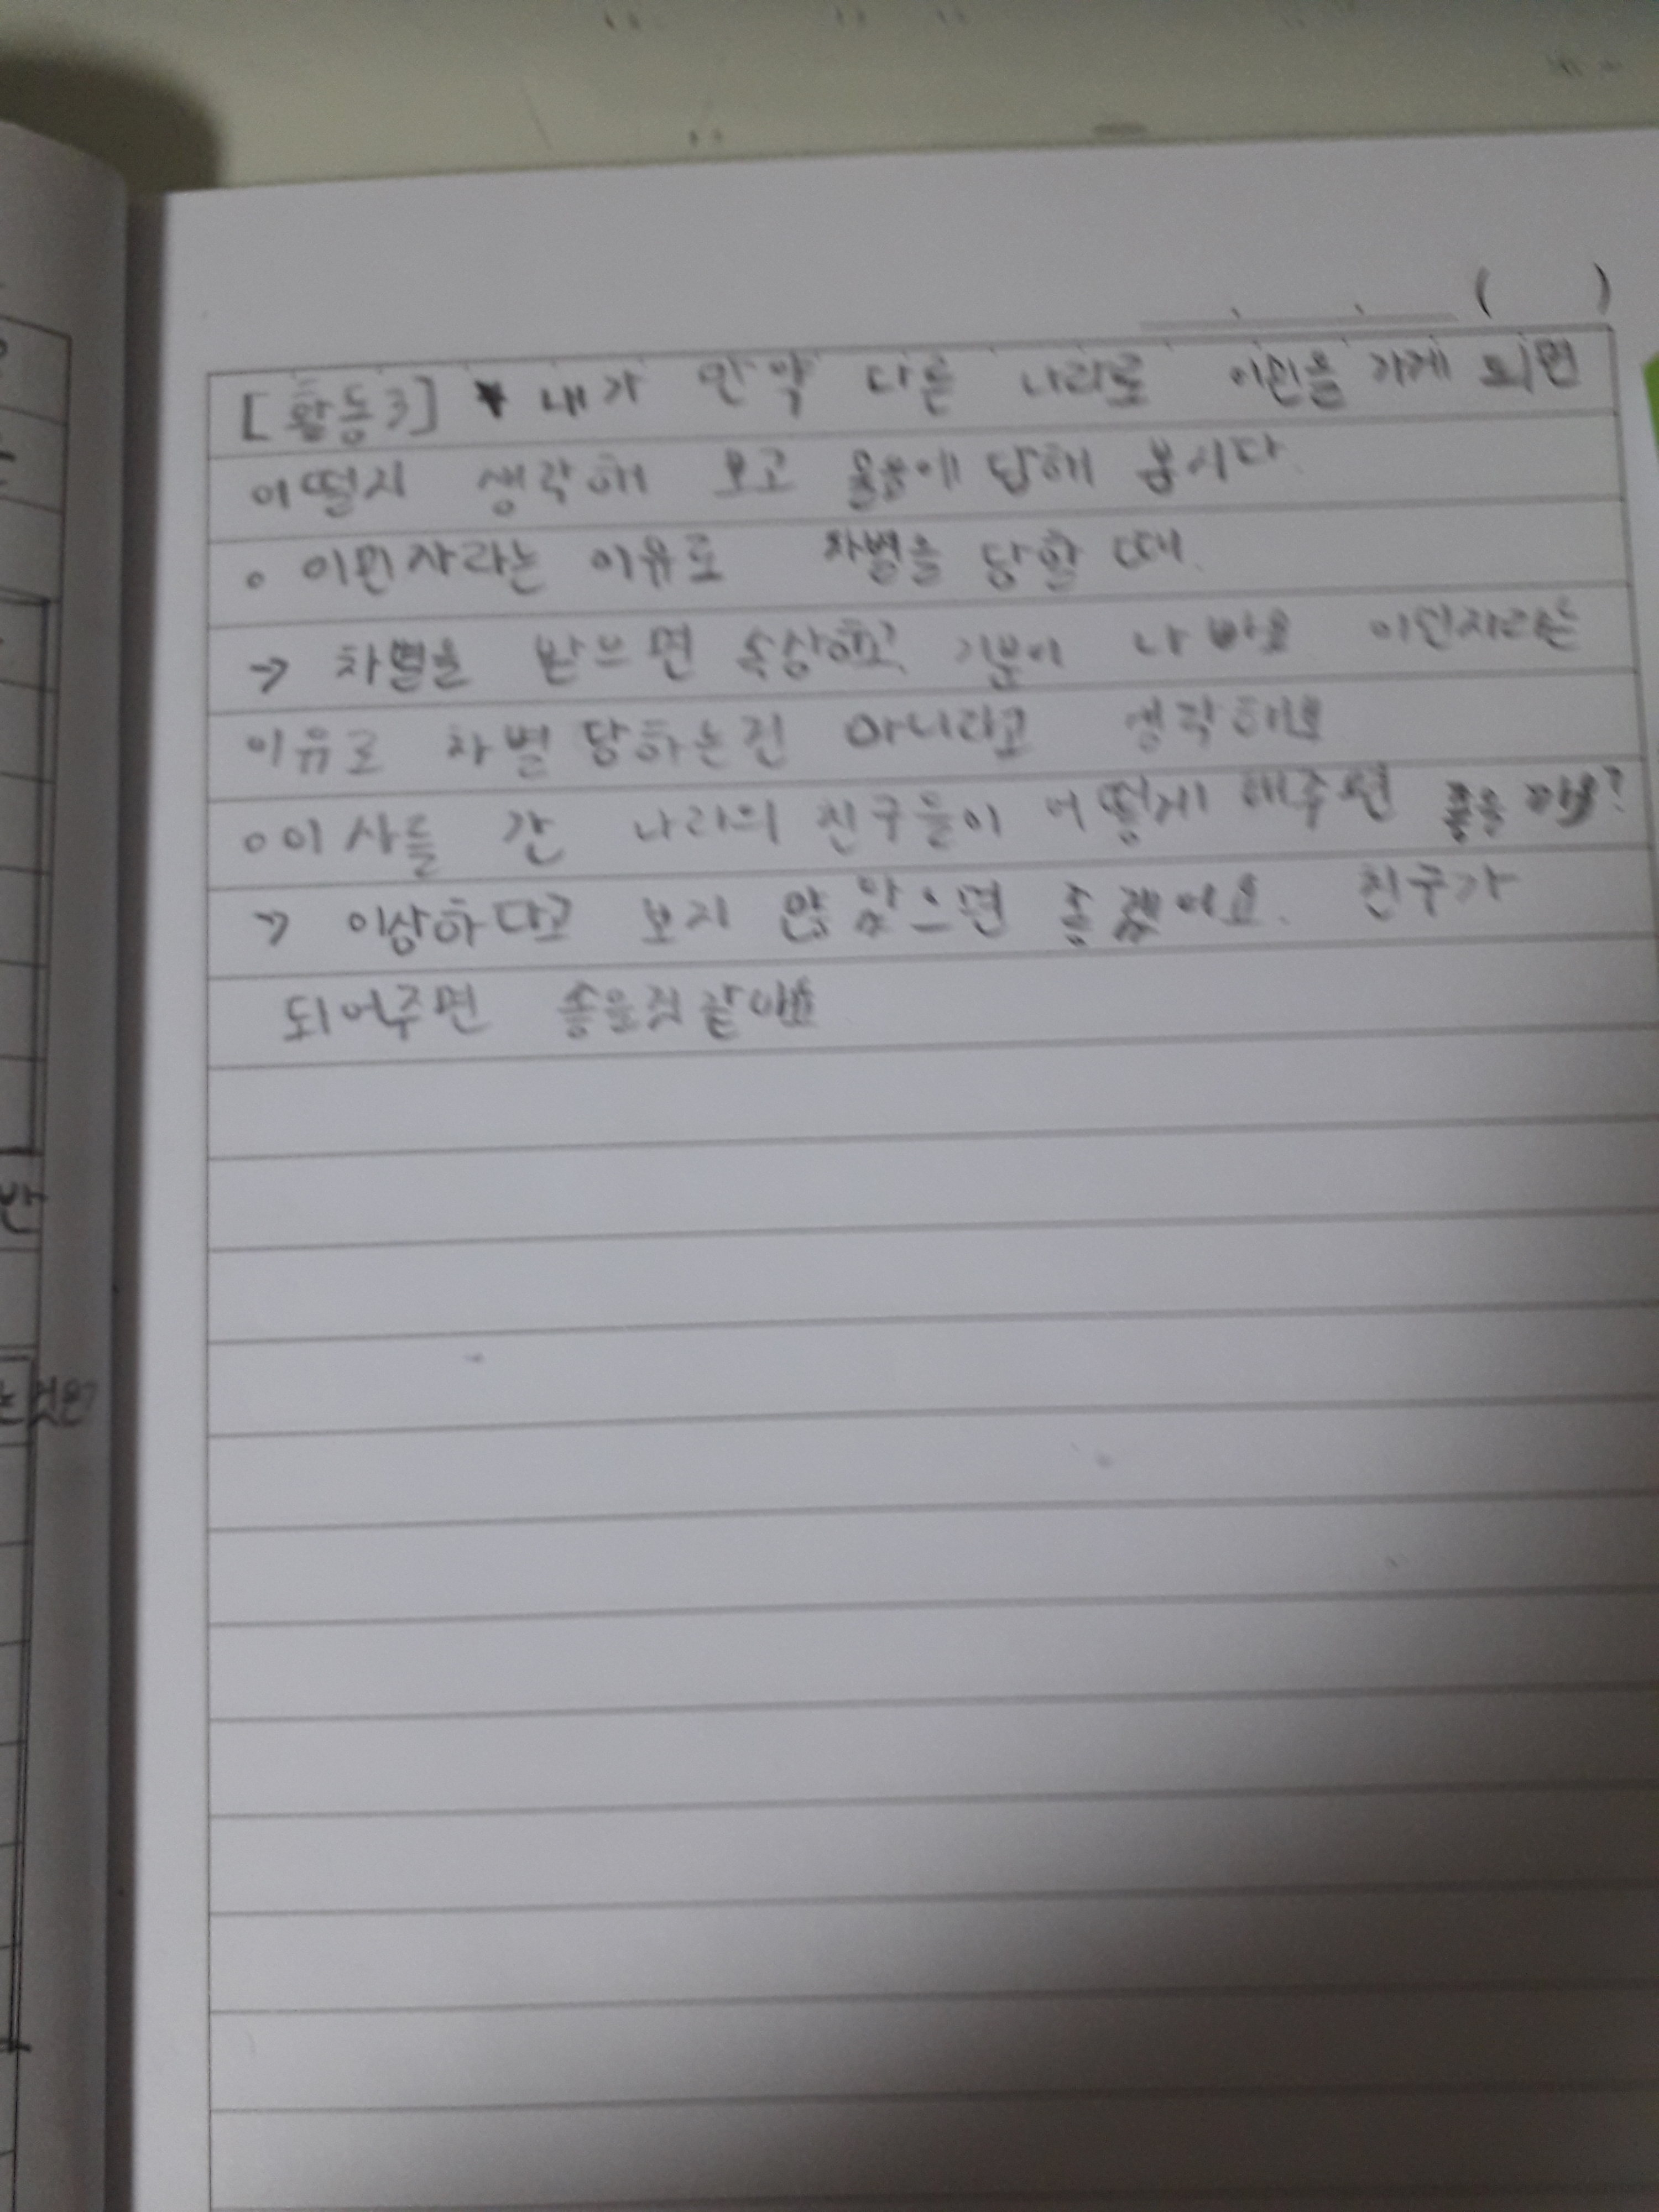 [활동3] ★ 내가 만약 다른 나라로 이민을 가게 되면
어떨지 생각해 보고 물음에 답해 봅시다.
○ 이민자라는 이유로 차별을 당할 때.
→ 차별을 받으면 속상하고 기분이 나빠요 이민자라는
이유로 차별 당하는건 아니라고 생각해요
○ 이사를 간 나라의 친구들이 어떻게 해주면 좋을까요?
→ 이상하다고 보지 않았으면 좋겠어요. 친구가
되어주면 좋을것 같아요